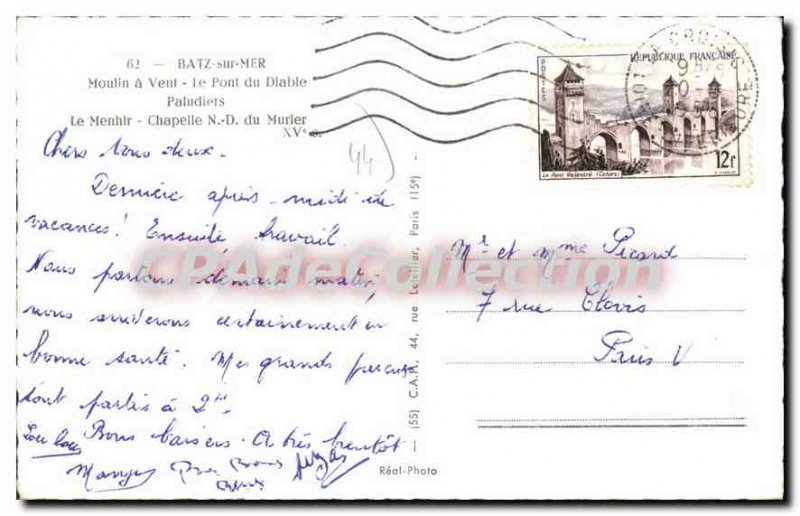 62 — BATZ-sur-MER
Moulin à Vent - Le Pont du Diable
Paludiers
Le Menhir - Chapelle N.-D. du Murier
XVe s.
44
Chers tous deux.
Dernière après-midi de
vacances! Ensuite travail.
Nous partons demain matin,
nous arriverons certainement en
bonne santé. Mes grands parents
sont partis à 2h.
Bons baisers. A très bientôt
(55) C.A.P., 44, rue Letellier, Paris (15e)
Réal-Photo
POSTES
REPUBLIQUE FRANÇAISE
Le Pont Valentré (Cahors)
12f
Mr et Mme Picard
7 rue Clovis
Paris V
CPAdeCollection